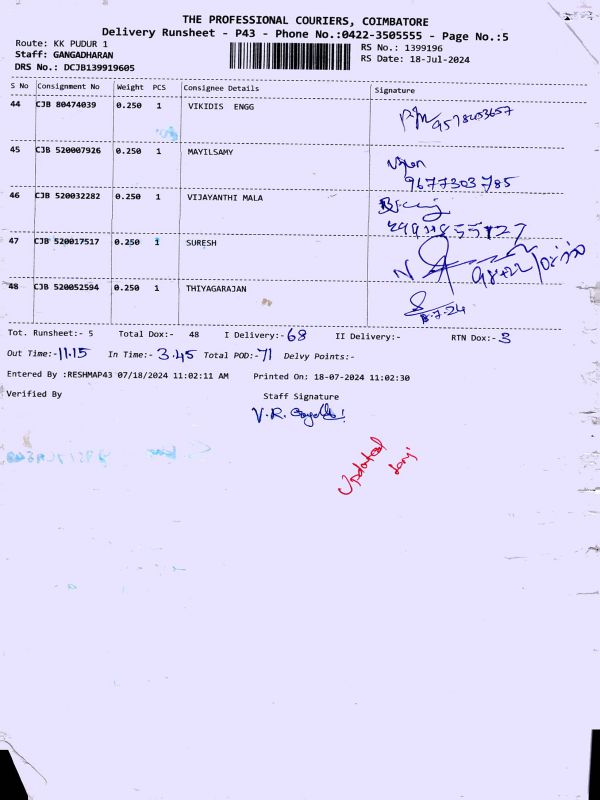 THE PROFESSIONAL COURIERS, COIMBATORE
Delivery Runsheet - P43 - Phone No.:0422-3505555 - Page No.:5
Route: KK PUDUR 1
RS No.: 1399196
Staff: GANGADHARAN
RS Date: 18-Jul-2024
DRS No.: DCJB139919605
S No Consignment No Weight PCS Consignee Details Signature
44 CJB 80474039 0.250 1 VIKIDIS ENGG
45 CJB 520007926 0.250 1 MAYILSAMY
9677303785
46 CJB 520032282 0.250 1 VIJAYANTHI MALA
47 CJB 520017517 0.250 1 SURESH
48 CJB 520052594 0.250 1 THIYAGARAJAN
Tot. Runsheet:- 5 Total Dox:- 48 I Delivery:- 68 II Delivery:- RTN Dox:- 3
Out Time:- 11.15 In Time:- 3.45 Total POD:- 71 Delvy Points:-
Entered By :RESHMAP43 07/18/2024 11:02:11 AM Printed On: 18-07-2024 11:02:30
Verified By Staff Signature
Updated